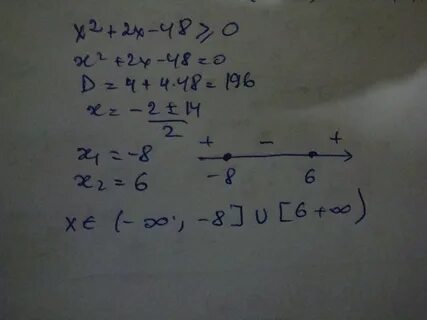 x² + 2x - 48 ⩾ 0
x² + 2x - 48 = 0
D = 4 + 4·48 = 196
x = -2 ± 14
2
x₁ = -8
x₂ = 6
+ - +
-8 6
x ∈ (-∞; -8] ∪ [6 +∞)